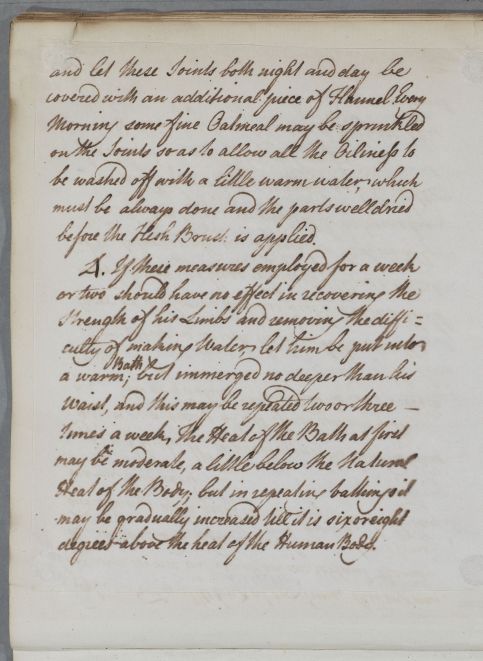 and let these Joints both night and day be
covered with an additional piece of Flannel, Every
Morning some fine Oatmeal may be sprinkled
on the Joints so as to allow all the Oiliness to
be washed off with a little warm water, which
must be always done and the parts well dried
before the Flesh Brush is applied.
4. If these measures employed for a week
or two should have no effect in recovering the
Strength of his Limbs and removing the diffi=
culty of making Water, let him be put into
a warm Bath, but immerged no deeper than his
Waist, and this may be repeated two or three
times a week, The Heat of the Bath at first
may be moderate, a little below the Natural
Heat of the Body; but in repeating bathing it
may be gradually increased till it is six or eight
degrees above the heat of the Human Body.